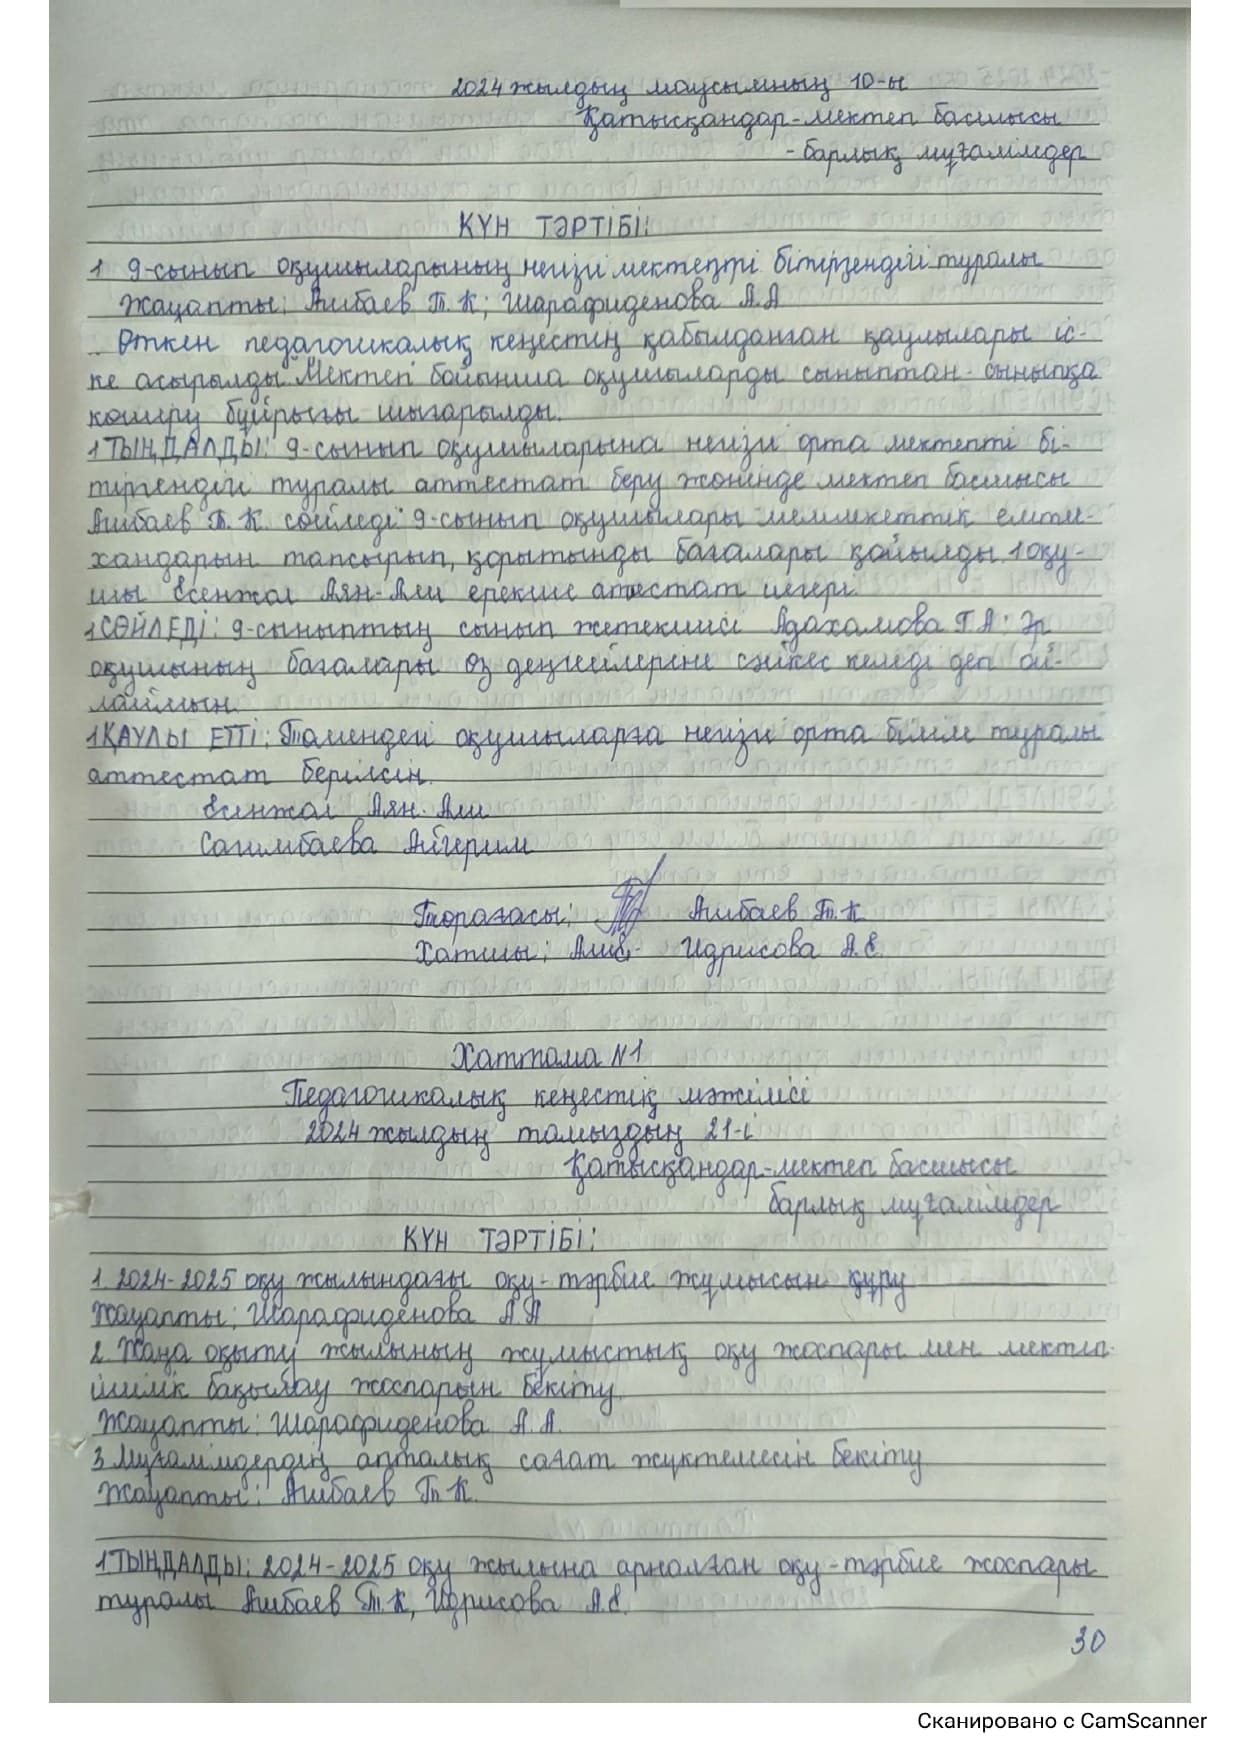 2024 жылдың маусымның 10-ы
Қатысқандар-мектеп басшысы
-барлық мұғалімдер
КҮН ТӘРТІБІ:
1 9-сынып оқушыларының негізгі мектепті бітіргендігі туралы
Жауапты: Ашбаев Т.К; Шарафиденова А.А
Өткен педагогикалық кеңестің қабылданған қаулылары іс-
ке асырылды. Мектеп бойынша оқушыларды сыныптан-сыныпқа
көшіру бұйрығы шығарылды.
1 ТЫҢДАЛДЫ: 9-сынып оқушыларына негізгі орта мектепті бі-
тіргендігі туралы аттестат беру жөнінде мектеп басшысы
Ашбаев Т.К. сөйледі: 9-сынып оқушылары мемлкеттік емти-
хандарын тапсырып, қорытынды бағалары қойылды. 1 оқу-
шы Есенжол Аян-Али ерекше аттестат иегері.
1 СӨЙЛЕДІ: 9-сыныптың сынып жетекшісі Адахамова Г.А: Әр
оқушының бағалары өз деңгейлеріне сәйкес келеді деп ой-
лаймын.
1 ҚАУЛЫ ЕТТІ: Төмендегі оқушыларға негізгі орта білім туралы
аттестат берілсін.
Есенжол Аян-Али
Сагимбаева Айгерим
Төрағасы: Ашбаев Т.К
Хатшы: Идрисова А.Е.
Хаттама №1
Педагогикалық кеңестің мәжілісі
2024 жылдың тамыздың 21-і
Қатысқандар-мектеп басшысы
барлық мұғалімдер
КҮН ТӘРТІБІ:
1. 2024-2025 оқу жылындағы оқу-тәрбие жұмысын құру
Жауапты: Шарафиденова А.А
2. Жаңа оқыту жылының жұмыстық оқу жоспары мен мектеп
ішілік бақылау жоспарын бекіту.
Жауапты: Шарафиденова А.А.
3 Мұғалімдердің апталық сағат жүктемесін бекіту
Жауапты: Ашбаев Т.К.
1 ТЫҢДАЛДЫ: 2024-2025 оқу жылына арналған оқу-тәрбие жоспары
туралы Ашбаев Т.К, Идрисова А.Е.
30
Сканировано с CamScanner